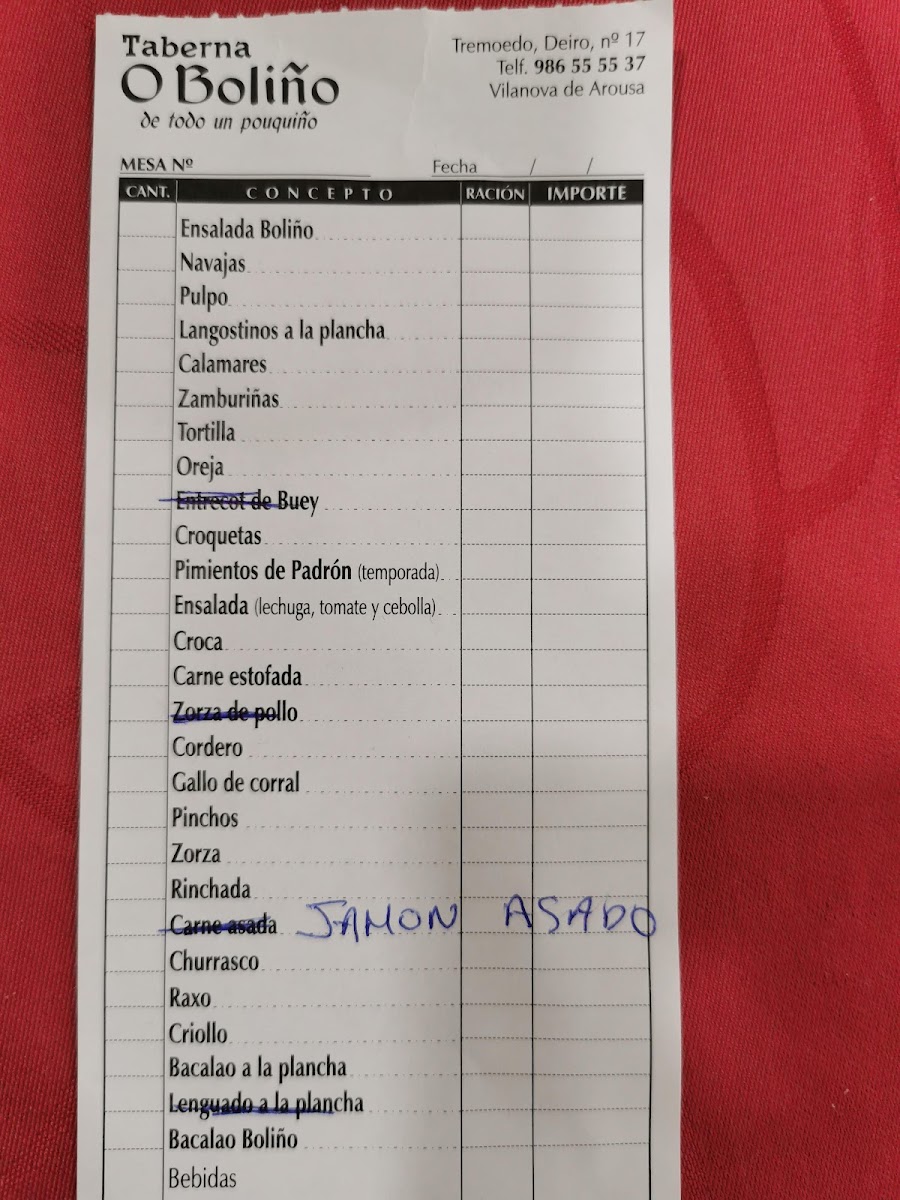 Taberna
O Boliño
de todo un pouquiño
Tremoedo, Deiro, nº 17
Telf. 986 55 55 37
Vilanova de Arousa
MESA Nº Fecha / /
CANT. CONCEPTO RACIÓN IMPORTE
Ensalada Boliño
Navajas
Pulpo
Langostinos a la plancha
Calamares
Zamburiñas
Tortilla
Oreja
Entrecot de Buey
Croquetas
Pimientos de Padrón (temporada)
Ensalada (lechuga, tomate y cebolla)
Croca
Carne estofada
Zorza de pollo
Cordero
Gallo de corral
Pinchos
Zorza
Rinchada
Carne asada JAMON ASADO
Churrasco
Raxo
Criollo
Bacalao a la plancha
Lenguado a la plancha
Bacalao Boliño
Bebidas